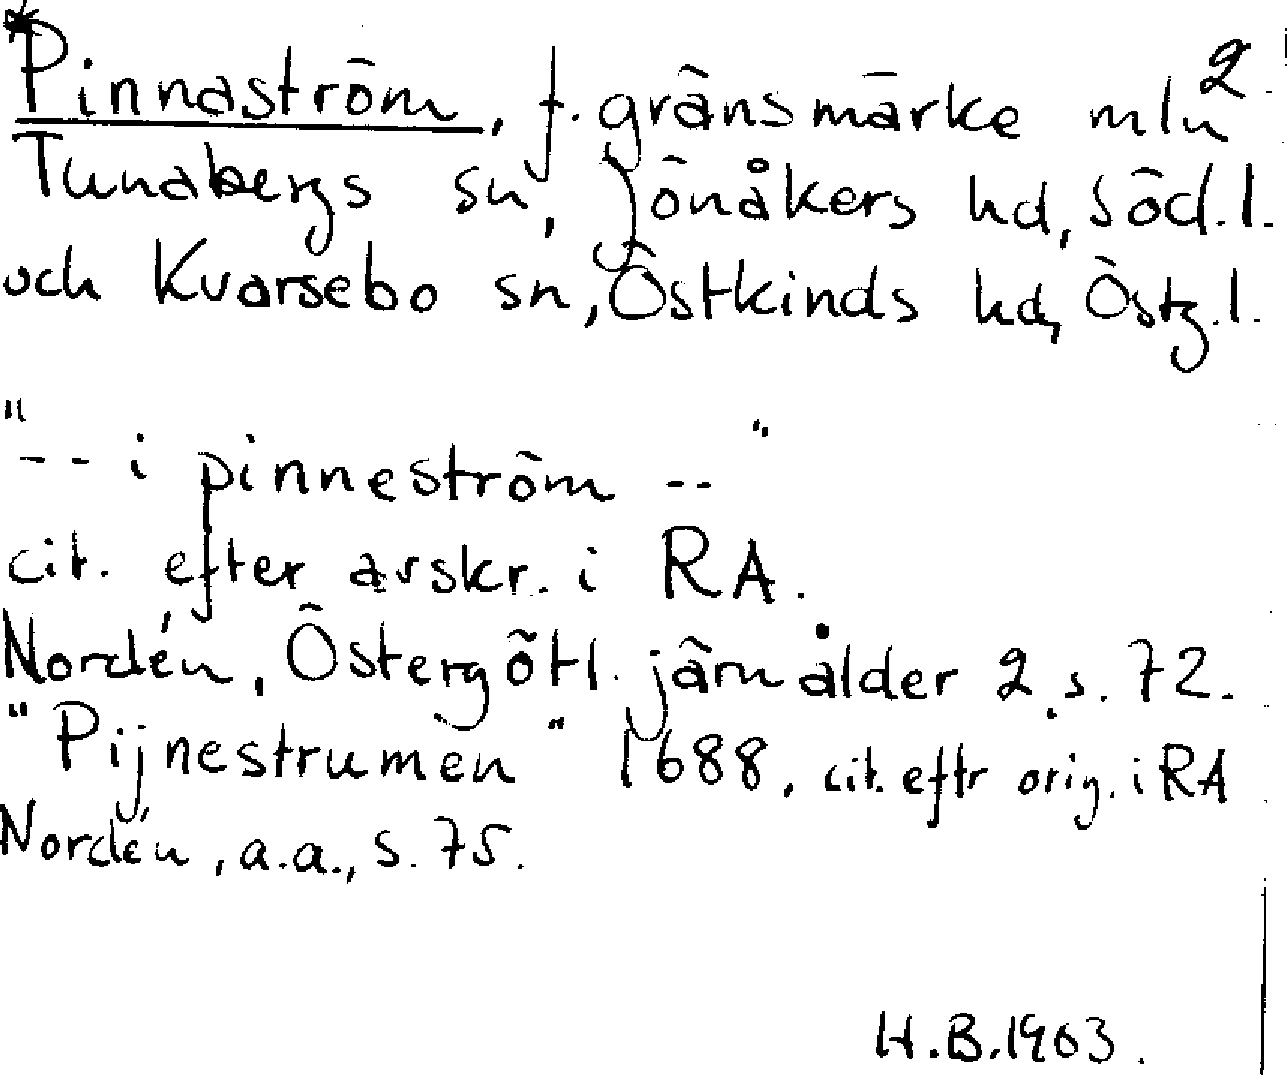 *Pinnaström, f. gränsmärke mln 2
Tunabergs sn, Jönåkers hd, Söd.l.
och Kvarsebo sn, Östkinds hd, Östg.l.
"-- i pinneström --"
cit. efter avskr. i RA.
Nordén, Östergötl. järnålder 2, s. 72.
"Pijnestrumen" 1688, cit. eftr orig. i RA
Nordén, a.a., s. 75.
H.B.1963.